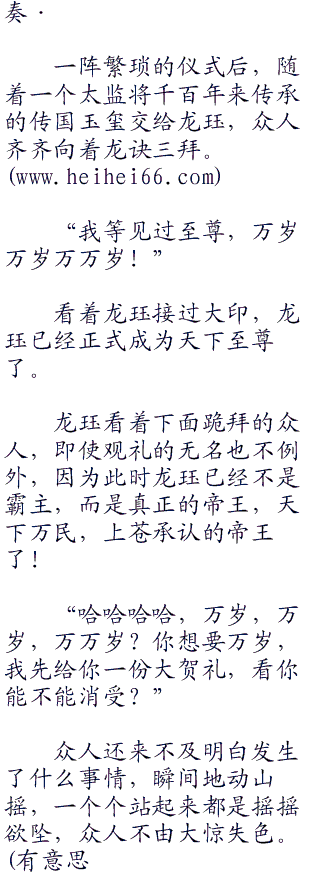 奏·
一阵繁琐的仪式后，随
着一个太监将千百年来传承
的传国玉玺交给龙珏，众人
齐齐向着龙诀三拜。
(www.heihei66.com)
“我等见过至尊，万岁
万岁万万岁！”
看着龙珏接过大印，龙
珏已经正式成为天下至尊
了。
龙珏看着下面跪拜的众
人，即使观礼的无名也不例
外，因为此时龙珏已经不是
霸主，而是真正的帝王，天
下万民，上苍承认的帝王
了！
“哈哈哈哈，万岁，万
岁，万万岁？你想要万岁，
我先给你一份大贺礼，看你
能不能消受？”
众人还来不及明白发生
了什么事情，瞬间地动山
摇，一个个站起来都是摇摇
欲坠，众人不由大惊失色。
(有意思